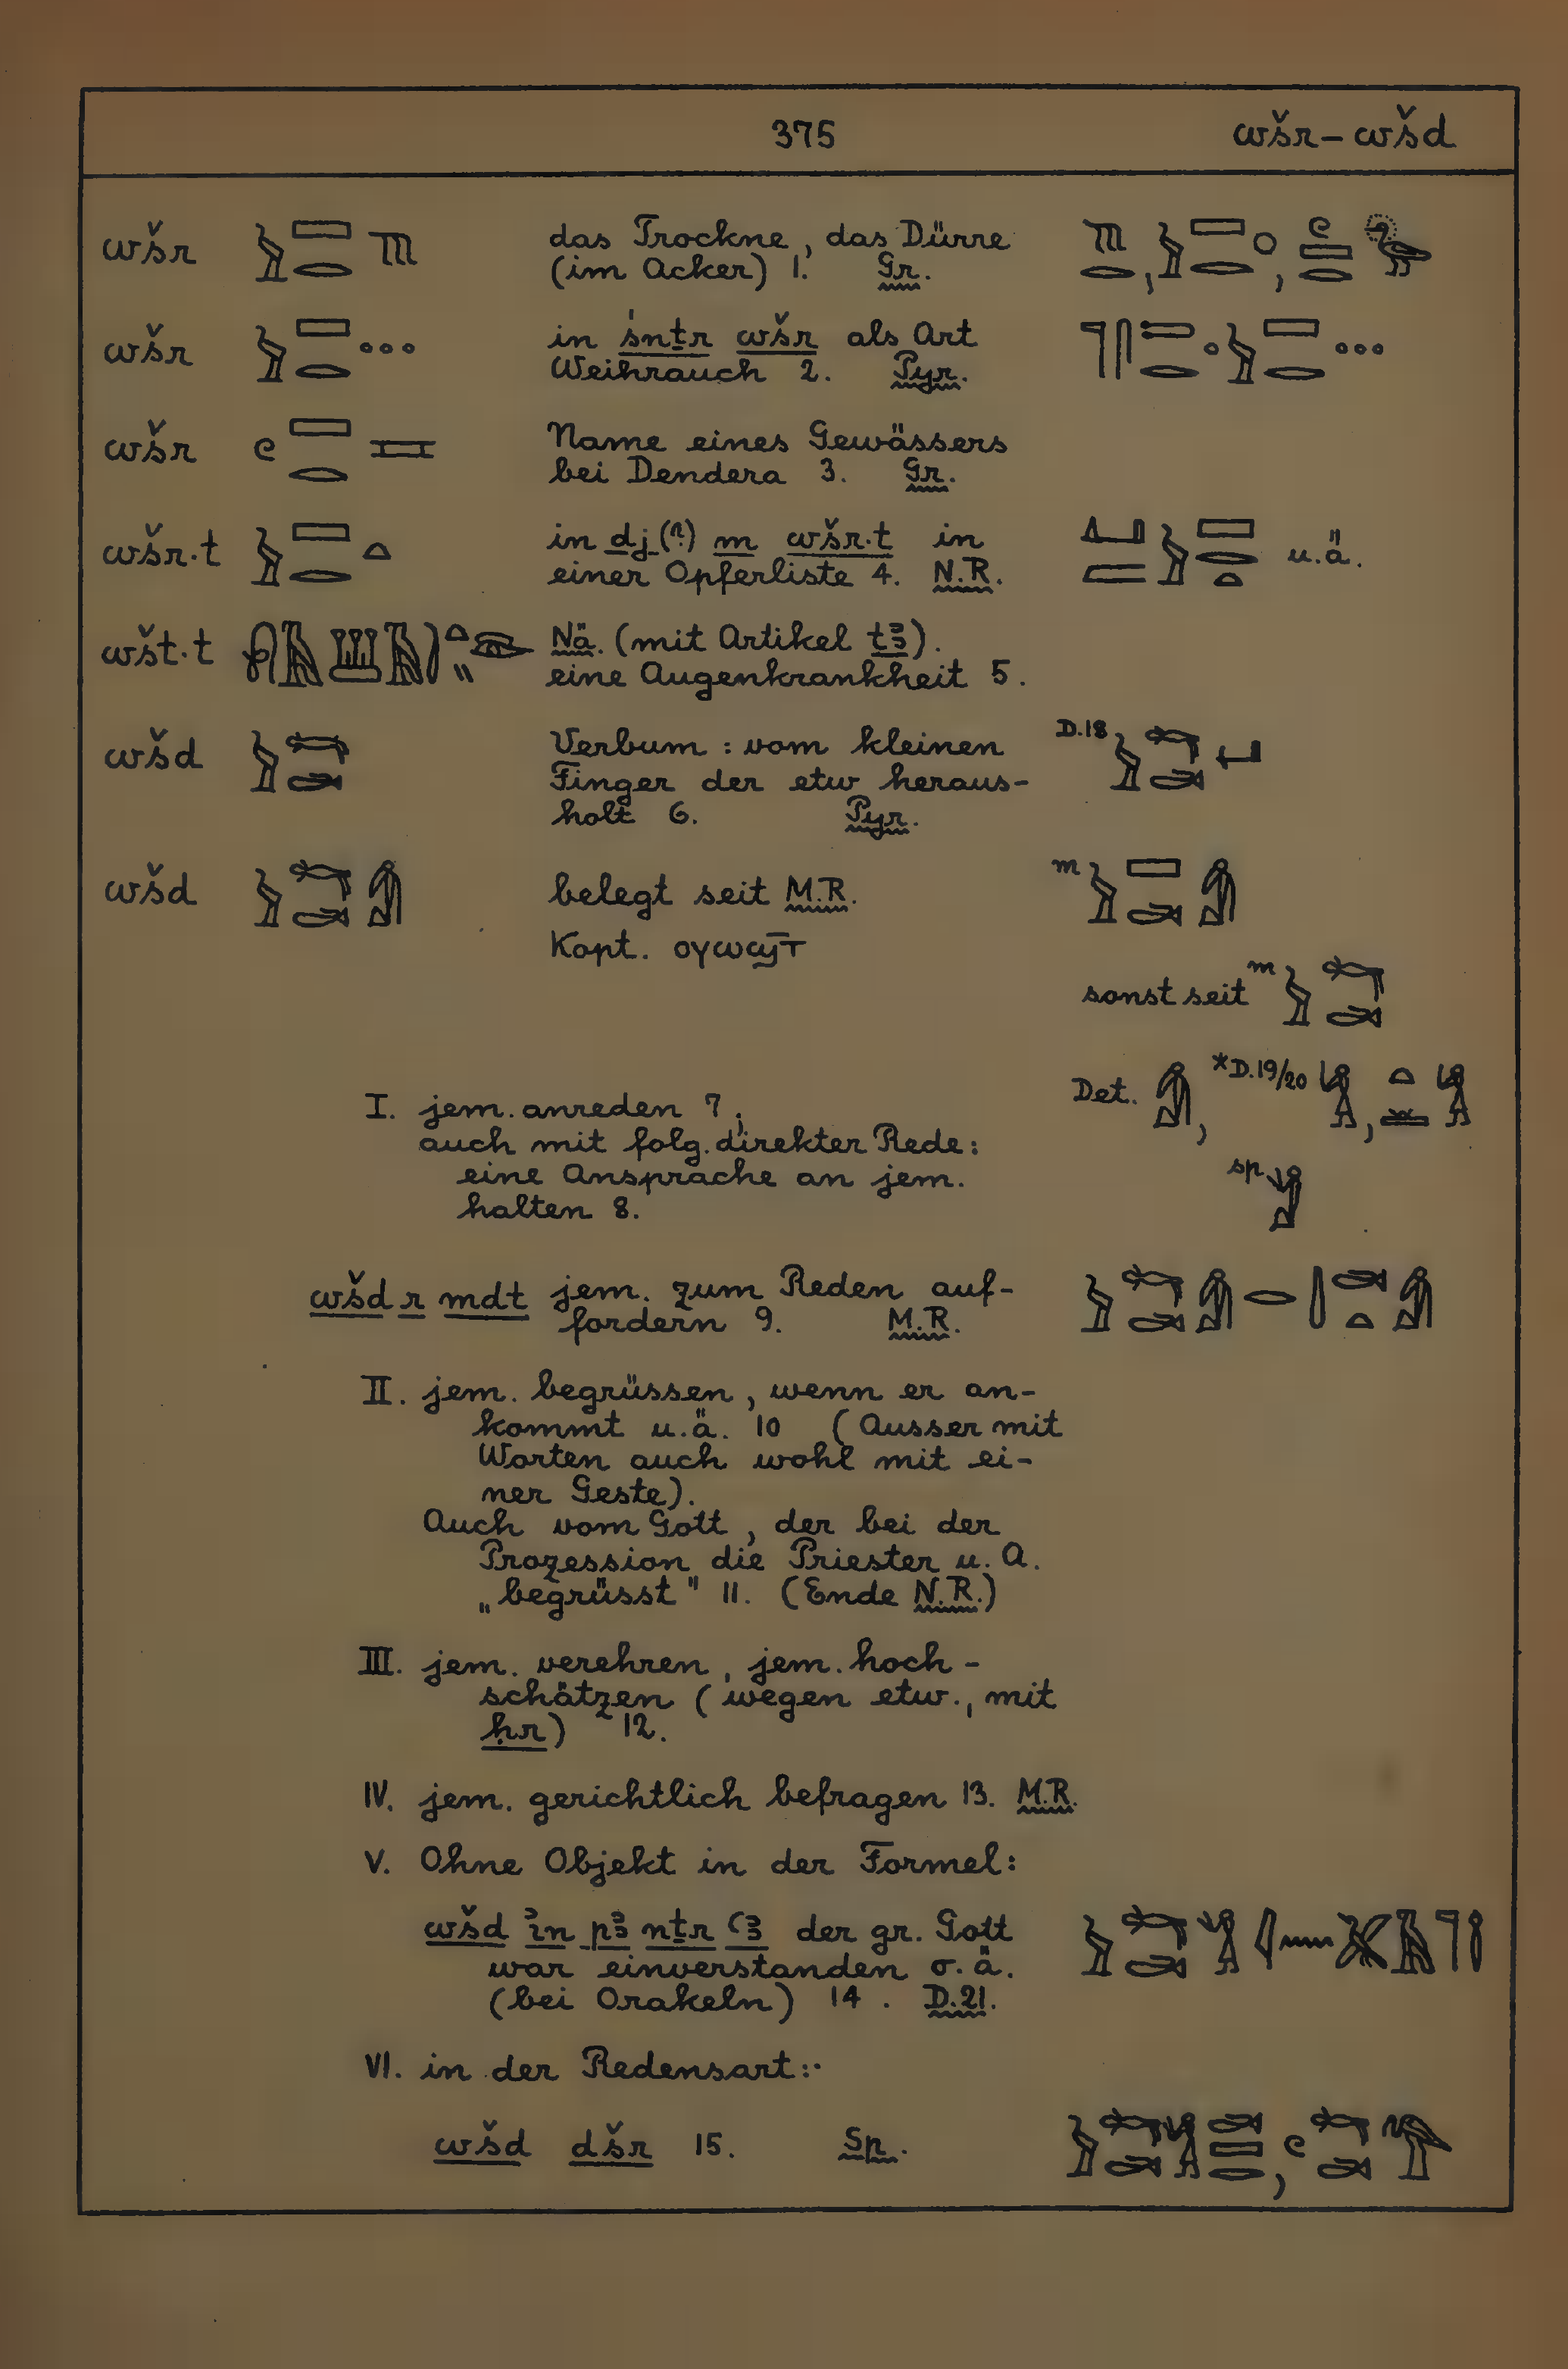 375
wšr – wšd
wšr
das Trockne, das Dürre
(im Acker) 1. Gr.
wšr
in śnṯr wšr als Art
Weihrauch 2. Pyr.
wšr
Name eines Gewässers
bei Dendera 3. Gr.
wšr·t
in dj (?) m wšr·t in
einer Opferliste 4. N.R.
u.ä.
wšt·t
Nä. (mit Artikel tꜣ).
eine Augenkrankheit 5.
wšd
Verbum : vom kleinen
Finger der etw heraus-
holt 6. Pyr.
D.18
wšd
belegt seit M.R.
Kopt. ⲟⲩⲱϣ̅ⲧ
m
sonst seit m
Det. , *D.19/20 ,
sp
I. jem. anreden 7;
auch mit folg. direkter Rede:
eine Ansprache an jem.
halten 8.
wšd r mdt jem. zum Reden auf-
fordern 9. M.R.
II. jem. begrüssen, wenn er an-
kommt u.ä. 10 (Ausser mit
Worten auch wohl mit ei-
ner Geste).
Auch vom Gott, der bei der
Prozession die Priester u. A.
„begrüsst" 11. (Ende N.R.)
III. jem. verehren, jem. hoch-
schätzen (wegen etw., mit
ḥr) 12.
IV. jem. gerichtlich befragen 13. M.R.
V. Ohne Objekt in der Formel:
wšd ꞽn pꜣ nṯr ꜥꜣ der gr. Gott
war einverstanden o.ä.
(bei Orakeln) 14. D.21.
VI. in der Redensart:
wšd dšr 15. Sp.